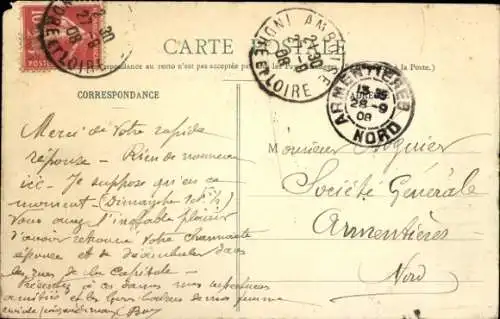 10
POSTES
2 30
28 - 9
08
INDRE ET LOIRE
AMBOISE
2 30
08
LOIRE
CARTE POSTALE
(La correspondance au recto n'est pas acceptée par
à la Poste.)
ARMENTIÈRES
28 - 9
08
NORD
CORRESPONDANCE
Merci de votre rapide
réponse - Rien de nouveau
ici - Je suppose qu'en ce
moment (Dimanche
Vous avez l'ineffable plaisir
d'avoir retrouvé votre charmante
épouse et de déambuler dans
les rues de la Capitale -
Présentez à ces dames mes respectueuses
amitiés et les
de ma femme
Monsieur
Société Générale
Armentières
Nord